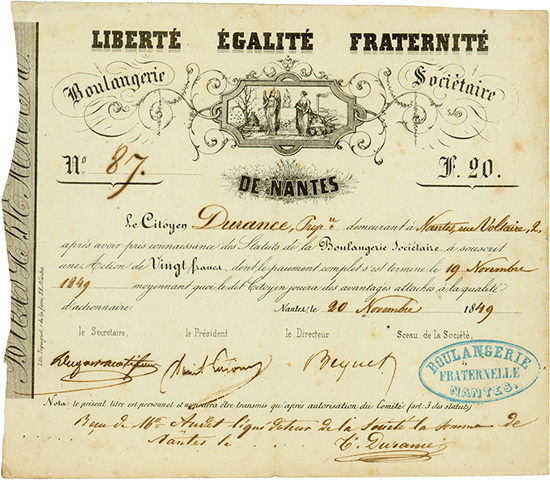 LIBERTÉ ÉGALITÉ FRATERNITÉ
Boulangerie Sociétaire
N° 87. F. 20.
DE NANTES
Le Citoyen Durance, Propre demeurant à Nantes, rue Voltaire, 2
après avoir pris connaissance des Statuts de la Boulangerie Sociétaire a souscrit
une Action de Vingt francs, dont le paiement complet s'est terminé le 19 Novembre
1849 moyennant quoi le dit Citoyen jouira des avantages attachés à la qualité
d'actionnaire. Nantes, le 20 Novembre 1849
le Secrétaire, le Président le Directeur Sceau de la Société,
Becquet
BOULANGERIE
FRATERNELLE
NANTES.
Nota: le présent titre est personnel et ne pourra être transmis qu'après autorisation du Comité (art. 3 des statuts)
Reçu de Mr liquidateur de la Société la somme de
Nantes le Durance